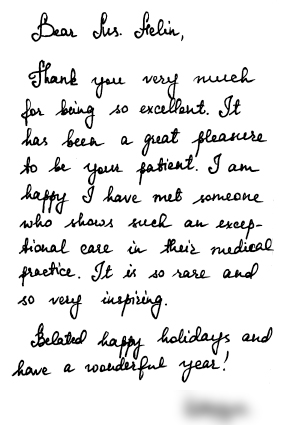 Dear Mrs. Stelin,
Thank you very much
for being so excellent. It
has been a great pleasure
to be your patient. I am
happy I have met someone
who shows such an excep-
tional care in their medical
practice. It is so rare and
so very inspiring.
Belated happy holidays and
have a wonderful year!